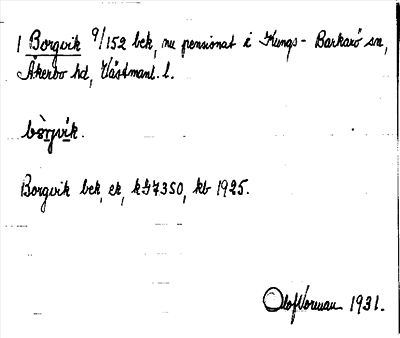 1 Borgvik 9/152 bek, nu pensionat i Kungs-Barkarö sn,
Åkerbo hd, Västmanl. l.
bòrjvík.
Borgvik bek, ek, kJ7350, kb 1925.
Olof Norman 1931.